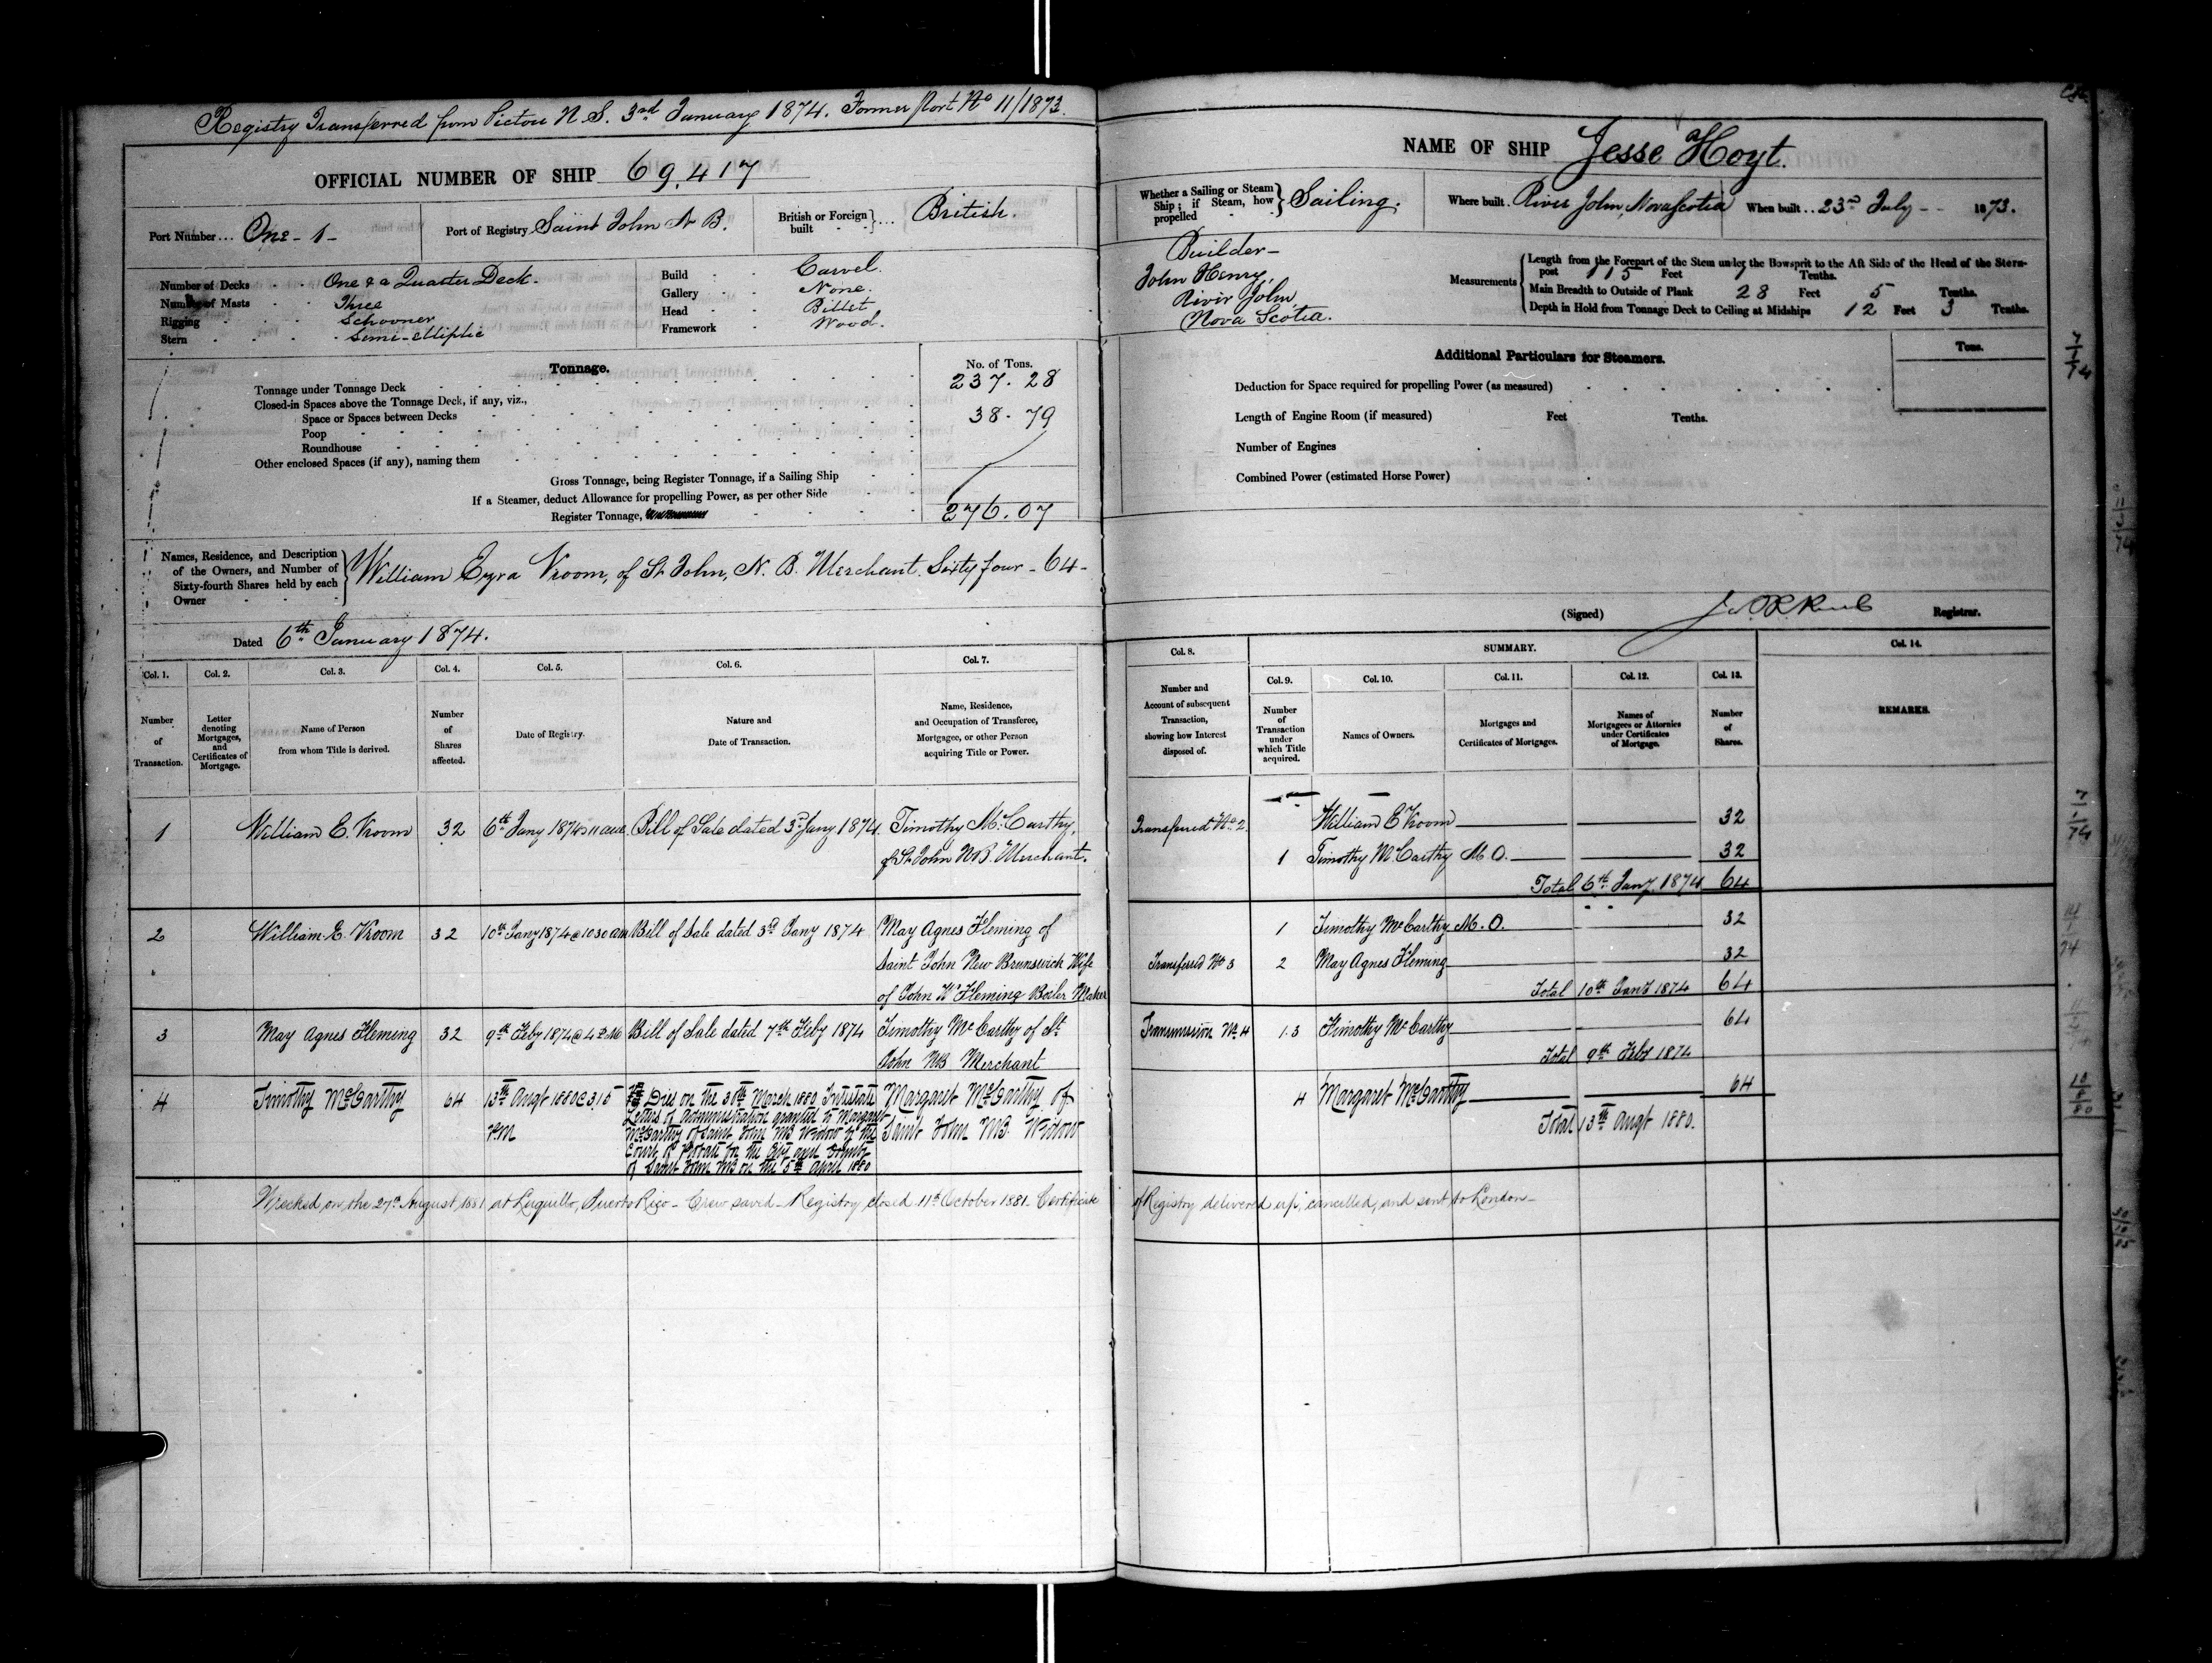 Registry Transferred from Pictou N.S. 3rd January 1874. Former Port No 11/1873.
OFFICIAL NUMBER OF SHIP 69,417
Port Number ... One - 1 -
Port of Registry Saint John N B.
British or Foreign built } ... British.
Number of Decks One & a Quarter Deck.
Number of Masts Three
Rigging Schooner
Stern Semi-Elliptic
Build Carvel.
Gallery None.
Head Billet
Framework Wood.
Tonnage.
No. of Tons.
Tonnage under Tonnage Deck 237.28
Closed-in Spaces above the Tonnage Deck, if any, viz.,
Space or Spaces between Decks 38.79
Poop
Roundhouse
Other enclosed Spaces (if any), naming them
Gross Tonnage, being Register Tonnage, if a Sailing Ship
If a Steamer, deduct Allowance for propelling Power, as per other Side
Register Tonnage, 276.07
Names, Residence, and Description of the Owners, and Number of Sixty-fourth Shares held by each Owner } William Ezra Vroom, of St John, N. B. Merchant. Sixty four - 64 -
Dated 6th January 1874.
NAME OF SHIP Jesse Hoyt.
Whether a Sailing or Steam Ship; if Steam, how propelled } Sailing.
Where built .. River John, Nova Scotia
When built .. 23rd July - - 1873.
Builder -
John Henry,
River John,
Nova Scotia.
Measurements
Length from the Forepart of the Stem under the Bowsprit to the Aft Side of the Head of the Stern-
post 115 Feet 7 Tenths.
Main Breadth to Outside of Plank 28 Feet 5 Tenths.
Depth in Hold from Tonnage Deck to Ceiling at Midships 12 Feet 3 Tenths.
Additional Particulars for Steamers.
Tons.
Deduction for Space required for propelling Power (as measured)
Length of Engine Room (if measured) Feet Tenths.
Number of Engines
Combined Power (estimated Horse Power)
(Signed) Registrar.
Col. 1. Col. 2. Col. 3. Col. 4. Col. 5. Col. 6. Col. 7.
Number of Transaction.
Letter denoting Mortgages, and Certificates of Mortgage.
Name of Person from whom Title is derived.
Number of Shares affected.
Date of Registry.
Nature and Date of Transaction.
Name, Residence, and Occupation of Transferee, Mortgagee, or other Person acquiring Title or Power.
Col. 8. SUMMARY. Col. 14.
Col. 9. Col. 10. Col. 11. Col. 12. Col. 13.
Number and Account of subsequent Transaction, showing how Interest disposed of.
Number of Transaction under which Title acquired.
Names of Owners.
Mortgages and Certificates of Mortgages.
Names of Mortgagees or Attornies under Certificates of Mortgage.
Number of Shares.
REMARKS.
1 William E. Vroom 32 6th Jany 1874 @ 11 am Bill of Sale dated 3rd Jany 1874. Timothy McCarthy,
of St John N.B. Merchant.
Transferred No 2. William E Vroom 32
1 Timothy McCarthy M.O. 32
Total 6th Jany 1874 64
2 William E. Vroom 32 10th Jany 1874 @ 10 30 am Bill of Sale dated 3rd Jany 1874 May Agnes Fleming of
Saint John New Brunswick Wife
of John W Fleming Boiler Maker
1 Timothy McCarthy M.O. 32
Transferred No 3 2 May Agnes Fleming 32
Total 10th Jany 1874 64
3 May Agnes Fleming 32 9th Feby 1874 @ 4 P.M Bill of Sale dated 7th Feby 1874 Timothy McCarthy of St.
John NB Merchant
Transmission No 4 1.3 Timothy McCarthy 64
Total 9th Feby 1874
4 Timothy McCarthy 64 13th Augt 1880 @ 3,15
P.M
Died on the 30th March 1880 Intestate
Letters of administration granted to Margaret
McCarthy of Saint John NB Widow by the
Court of Probate for the City and County
of Saint John NB on the 5th April 1880
Margaret McCarthy of
Saint John NB. Widow
4 Margaret McCarthy 64
Total 13th Augt 1880.
Wrecked on the 27th August, 1881 at Luquillo, Puerto Rico - Crew saved - Registry closed 11th October 1881. Certificate of Registry delivered up, cancelled, and sent to London -
7/1/74
7/1/74